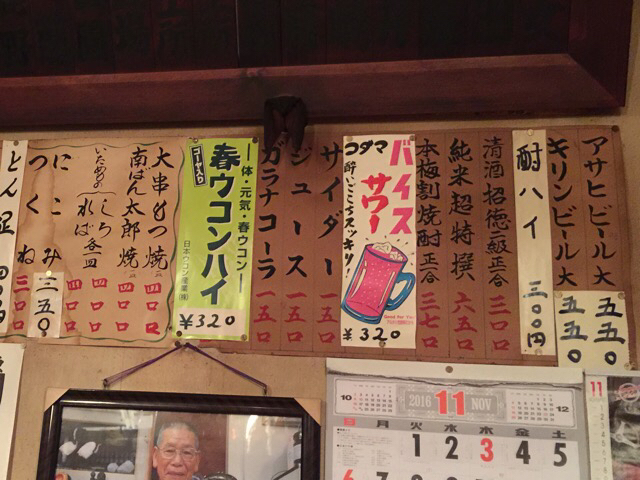 アサヒビール大 五五〇
キリンビール大 五五〇
酎ハイ 三〇〇円
清酒招徳二級正一合 三一〇
純米超特撰 六五〇
本梅割焼酎正一合 三七〇
バイスサワー
コダマ
酔いごこちスッキリ!
¥320
サイダー 一五〇
ジュース 一五〇
ガラナコーラ 一五〇
体・元気・春ウコン
春ウコンハイ
ゴーヤ入り
日本ウコン産業(株)
¥320
大串もつ焼
南ばん太郎焼
しろ
いためもの
ればー各一皿
にこみ 三五〇
つくね 三一〇
とん足
10
2016
11
NOV
12
月 火 水 木 金 土
1 2 3 4 5
11